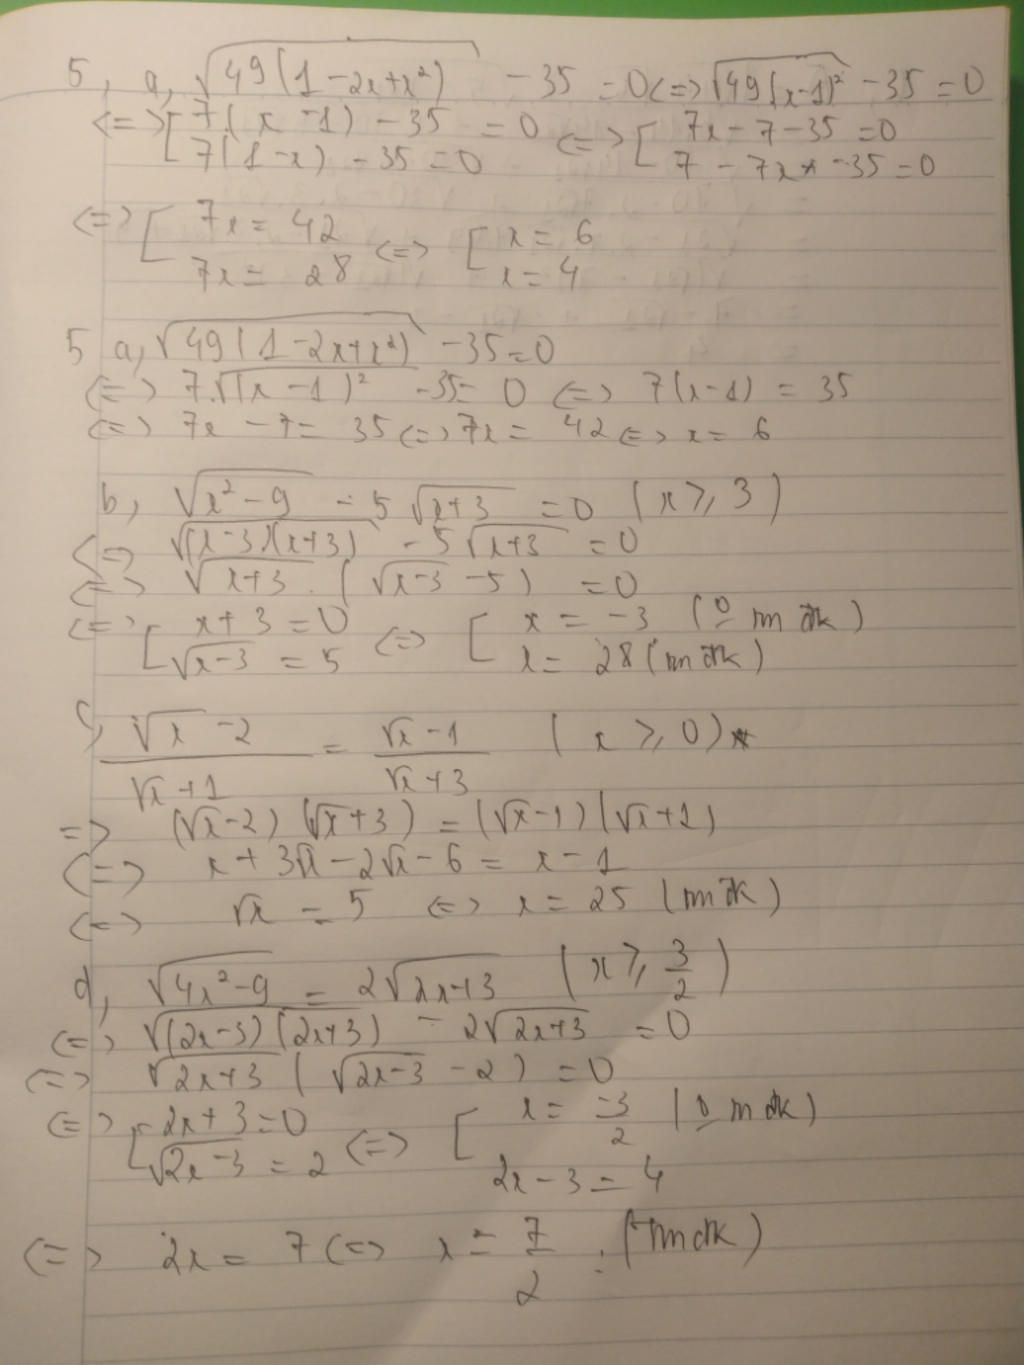 5, a, √49(1-2x+x²) - 35 = 0 <=> √49(x-1)² - 35 = 0
<=> [ 7(x-1) - 35 = 0 <=> [ 7x - 7 - 35 = 0
7(1-x) - 35 = 0 7 - 7x - 35 = 0
<=> [ 7x = 42 <=> [ x = 6
7x = 28 x = 4
5 a, √49(1-2x+x²) - 35 = 0
<=> 7.√(x-1)² - 35 = 0 <=> 7(x-1) = 35
<=> 7x - 7 = 35 <=> 7x = 42 <=> x = 6
b, √x²-9 - 5√x+3 = 0 (x ⩾ 3)
<=> √(x-3)(x+3) - 5√x+3 = 0
<=> √x+3 . (√x-3 - 5) = 0
<=> [ x + 3 = 0 <=> [ x = -3 (0 tm đk)
√x-3 = 5 x = 28 (tm đk)
c, √x - 2 / √x + 1 = √x - 1 / √x + 3 (x ⩾ 0)
=> (√x-2)(√x+3) = (√x-1)(√x+1)
<=> x + 3√x - 2√x - 6 = x - 1
<=> √x = 5 <=> x = 25 (tm đk)
d, √4x²-9 = 2√2x+3 (x ⩾ 3/2)
<=> √(2x-3)(2x+3) - 2√2x+3 = 0
<=> √2x+3 (√2x-3 - 2) = 0
<=> [ 2x + 3 = 0 <=> [ x = -3/2 (0 tm đk)
√2x-3 = 2 2x - 3 = 4
<=> 2x = 7 <=> x = 7/2 . (tm đk)